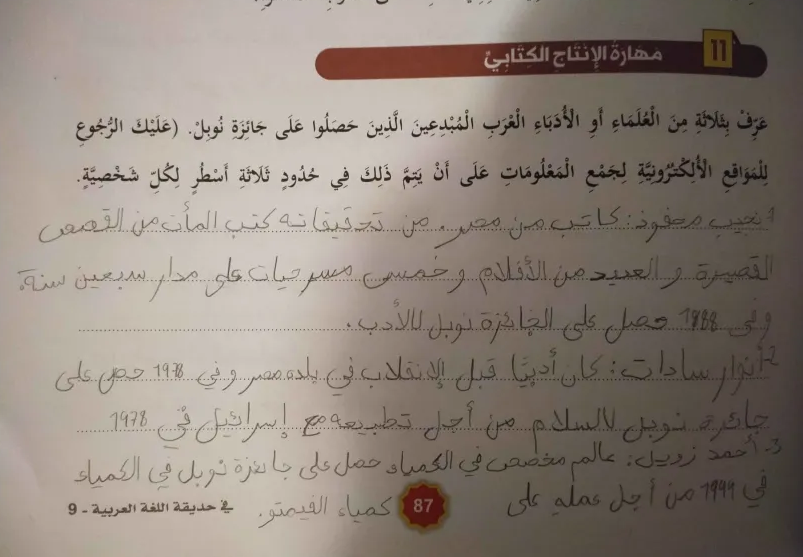 11 مَهَارَةُ الإِنْتَاجِ الكِتَابِيِّ
عَرِّفْ بِثَلَاثَةٍ مِنَ الْعُلَمَاءِ أَوِ الْأُدَبَاءِ الْعَرَبِ الْمُبْدِعِينَ الَّذِينَ حَصَلُوا عَلَى جَائِزَةِ نُوبِلْ. (عَلَيْكَ الرُّجُوعِ
لِلْمَوَاقِعِ الْأَلِكْتُرُونِيَّةِ لِجَمْعِ الْمَعْلُومَاتِ عَلَى أَنْ يَتِمَّ ذَلِكَ فِي حُدُودِ ثَلَاثَةِ أَسْطُرٍ لِكُلِّ شَخْصِيَّةٍ.
1 نجيب محفوذ: كاتب من مصر. من تحقيقاته كتب المأت من القصص
القصيرة و العديد من الأفلام و خمسى مسرحيات على مدار سبعين سنة.
وفي 1988 حصل على الجائزة نوبل للأدب.
2- أنوار سادات: كان أديبًا قبل الإنقلاب في بلده مصر و في 1978 حصل على
جائزة نوبل لالسلام من أجل تطبيعه مع إسرائيل في 1978
3- أحمد زويل: عالم مخصص في الكمياء حصل على جائزة نوبل في الكمياء
في 1999 من أجل عمله على كمياء الفيمتو.
87
في حديقة اللغة العربية - 9